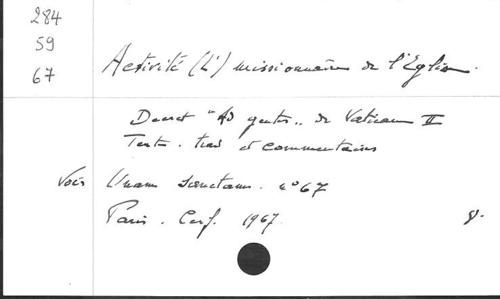 284
59
67
Activité (L') missionnaire de l'Eglise.
Decret "Ad gentes" de Vatican II
Texte. trad et commentaires
Voir Unam Sanctam. n° 67
Paris. Cerf. 1967.
8°.